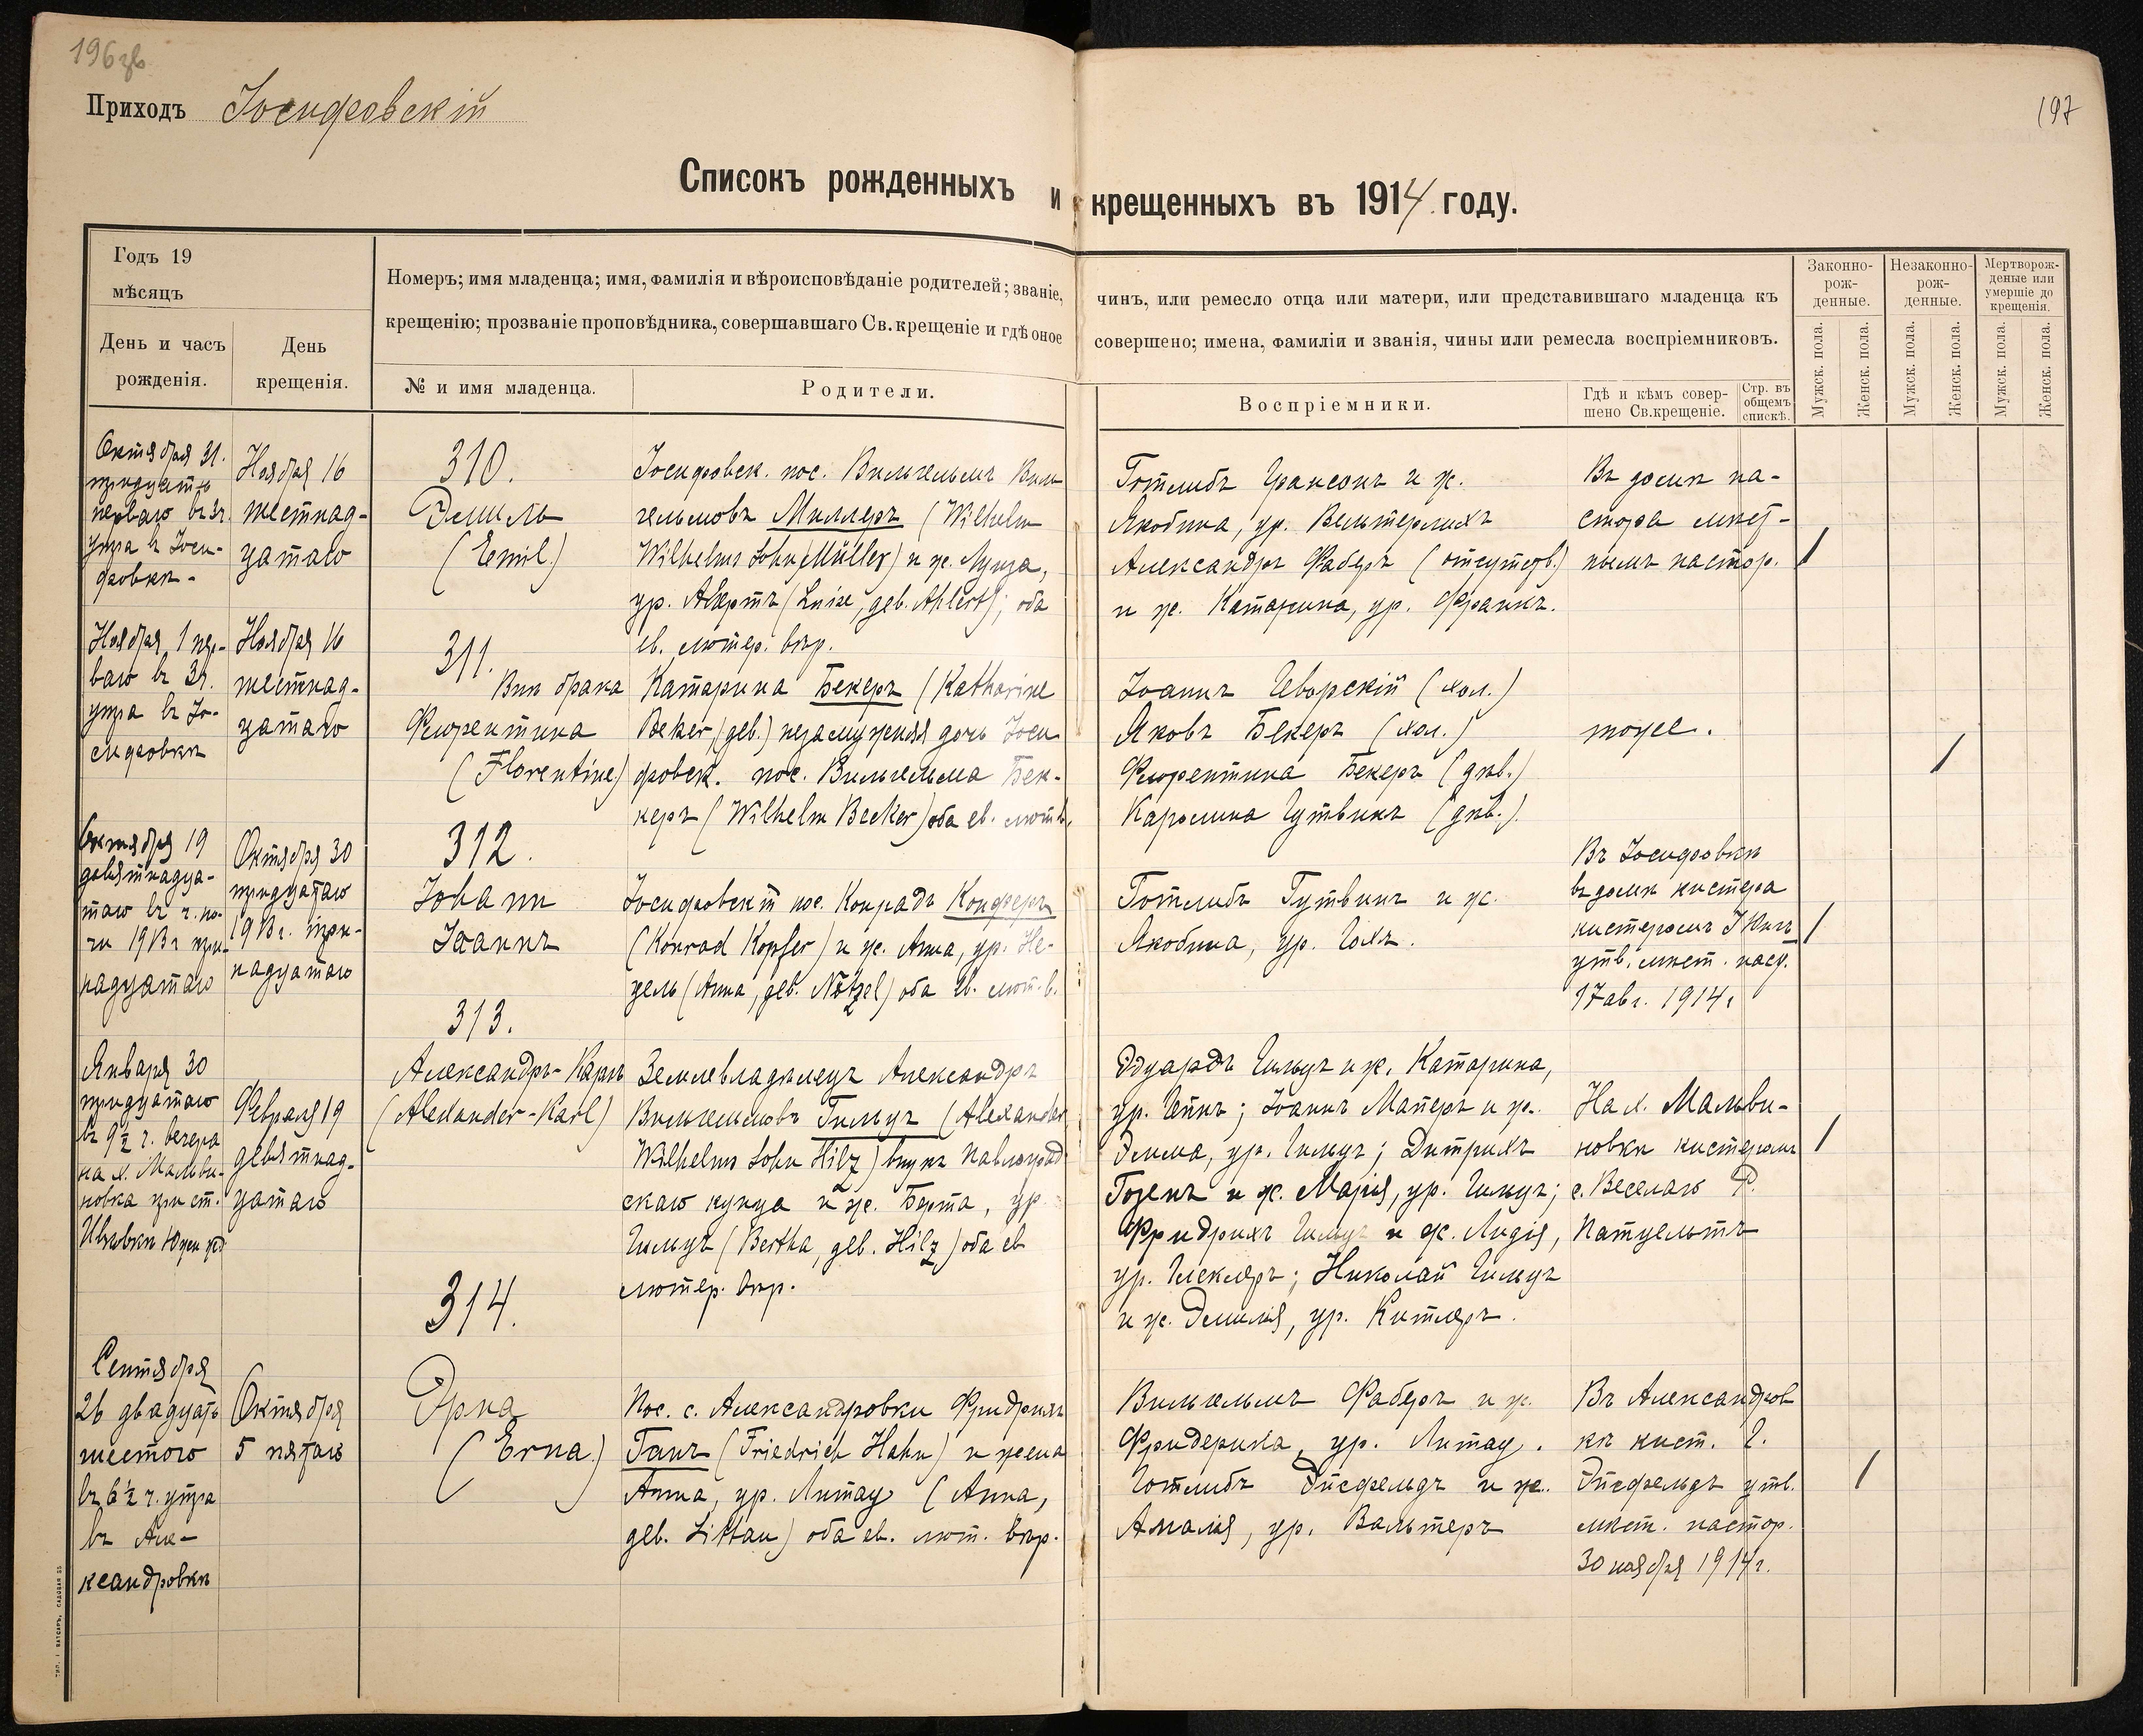 196 зв
Приходъ Іосифовскій
197
Списокъ рожденныхъ и крещенныхъ въ 1914 году.
Годъ 19
мѣсяцъ
День и часъ
рожденія.
День
крещенія.
Номеръ; имя младенца; имя, фамилія и вѣроисповѣданіе родителей; званіе,
крещенію; прозваніе проповѣдника, совершавшаго Св. крещеніе и гдѣ оное
№ и имя младенца.
Родители.
чинъ, или ремесло отца или матери, или представившаго младенца къ
совершено; имена, фамиліи и званія, чины или ремесла воспріемниковъ.
Воспріемники.
Гдѣ и кѣмъ совер-
шено Св. крещеніе.
Стр. въ
общемъ
спискѣ.
Законно-
рож-
денные.
Незаконно-
рож-
денные.
Мертворож-
деные или
умершіе до
крещенія.
Мужск. пола.
Женск. пола.
Мужск. пола.
Женск. пола.
Мужск. пола.
Женск. пола.
Октября 31.
тридцать
перваго въ 3ч.
утра въ Іоси-
фовкѣ-
Ноября 16
шестнад-
цатаго
310.
Эмиль
(Emil.)
Іосифовск. пос. Вильгельмъ Виль
гельмовъ Миллеръ (Wilhelm
Wilhelms Sohn Müller) и ж. Луиза,
ур. Алертъ (Luise, geb. Ahlert); оба
ев. лютер. вѣр.
Готлибъ и ж.
Якобина, ур. Вельтерлихъ
Александръ Фаберъ (отсутств.)
и ж. Катарина, ур. Франкъ.
Въ домѣ па-
стора мѣст-
нымъ пастор.
/
Ноября 1 пер-
ваго въ 3ч.
утра въ Іо-
сифовкѣ
Ноября 16
шестнад-
цатаго
311.
Внѣ брака
Флорентина
(Florentine)
Катарина Бекеръ (Katharine
Beker, geb.) незамужняя дочь Іоси
фовск. пос. Вильгельма Бек-
керъ (Wilhelm Becker) оба ев. лют. в.
Іоаннъ Яворскій (хол.)
Яковъ Бекеръ (хол.)
Флорентина Бекеръ (дѣв.)
Каролина Гутвинъ (дѣв.)
тоже.
/
Октября 19
девятнадца-
таго въ ч. но-
чи 1913г три-
надцатаго
Октября 30
тридцатаго
1913г. три-
надцатаго
312.
Johann
Іоаннъ
Іосифовскій пос. Конрадъ Копферъ
(Konrad Kopfer) и ж. Анна, ур. Не-
цель (Anna, geb. Nötzel) оба ев. лют. в.
Готлибъ Гутвинъ и ж.
Якобина, ур. Гохъ.
Въ Іосифовкѣ
въ домѣ кистера
кистеромъ І Кигъ
утв. мѣст. паст.
17 авг. 1914г
/
Января 30
тридцатаго
въ 9½ ч. вечера
на х. Мальви-
новка при ст.
Февраля 19
девятнад-
цатаго
313.
Александръ-Карлъ
(Alexander-Karl)
Землевладѣлецъ Александръ
Вильгельмовъ Гильцъ (Alexander
Wilhelms Sohn Hilz) внукъ павлоград
скаго купца и ж. Берта, ур.
Гильцъ (Bertha, geb. Hilz) оба ев
лютер. вѣр.
Эдуардъ Гильцъ и ж. Катарина,
ур. Еппъ; Іоаннъ Матеръ и ж.
Эмма, ур. Гильцъ; Дитрихъ
Гозенъ и ж. Марія, ур. Гильцъ;
Фридрихъ Гильцъ и ж. Лидія,
ур. Геклеръ; Николай Гильцъ
и ж. Эмилія, ур. Китлеръ.
На х. Мальви-
новкѣ кистеромъ
с. Веселаго Р.
Патцельтъ
/
Сентября
26 двадцать
шестого
въ 6½ ч. утра
въ Але-
ксандровкѣ
Октября
5 пятаго
314.
Эрна
(Erna.)
Пос. с. Александровки Фридрихъ
Ганъ (Friedrich Hahn) и жена
Анна, ур. Литау (Anna,
geb. Littau) оба ев. лют. вѣр.
Вильгельмъ Фаберъ и ж.
Фридерика, ур. Литау.
Готлибъ Эйсфельдъ и ж.
Амалія, ур. Вальтеръ
Въ Александров
кѣ кист. Г.
Эйсфельдъ утв.
мѣст. пастор.
30 ноября 1914г.
/